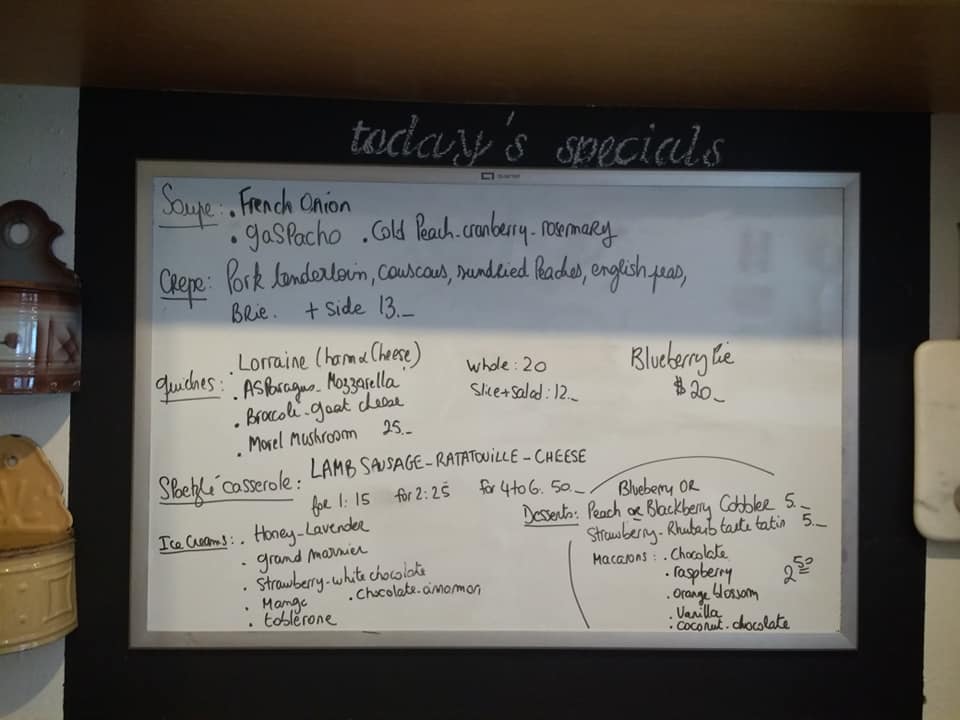 today's specials
Soupe: . French Onion
. gaspacho . Cold Peach-cranberry-rosemary
Crepe: Pork tenderloin, couscous, sundried Peaches, english peas,
Brie. + side 13._
quiches: . Lorraine (ham & Cheese)
. Asparagus-Mozzarella
. Broccoli-goat cheese
. Morel Mushroom 25._
Whole: 20
Slice+salad: 12._
Blueberry Pie
$20_
Spaetzlé casserole: LAMB SAUSAGE-RATATOUILLE-CHEESE
for 1: 15 for 2: 25 for 4 to 6. 50._
Ice Creams: . Honey-Lavender
. grand marnier
. Strawberry-white chocolate
. Mango . chocolate-cinnamon
. toblerone
Blueberry OR
Desserts: Peach or Blackberry Cobbler 5._
Strawberry-Rhubarb tarte tatin 5._
Macarons: . Chocolate
. raspberry 2 50
. orange blossom
. Vanilla
. coconut-chocolate